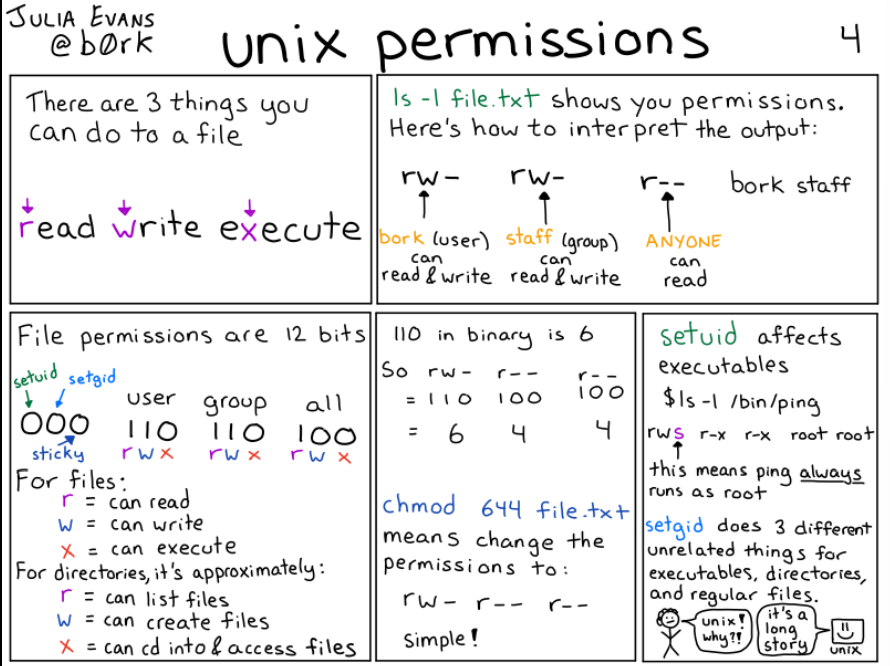 JULIA EVANS
@bork
unix permissions
4
There are 3 things you
can do to a file
read write execute
ls -l file.txt shows you permissions.
Here's how to interpret the output:
rw- rw- r-- bork staff
bork (user) staff (group) ANYONE
can can can
read & write read & write read
File permissions are 12 bits
setuid setgid
user group all
000 110 110 100
sticky rwx rwx rwx
For files:
r = can read
w = can write
x = can execute
For directories, it's approximately:
r = can list files
w = can create files
x = can cd into & access files
110 in binary is 6
So rw- r-- r--
= 110 100 100
= 6 4 4
chmod 644 file.txt
means change the
permissions to:
rw- r-- r--
simple!
setuid affects
executables
$ls -l /bin/ping
rws r-x r-x root root
this means ping always
runs as root
setgid does 3 different
unrelated things for
executables, directories,
and regular files.
unix!
why?!
it's a
long
story
unix